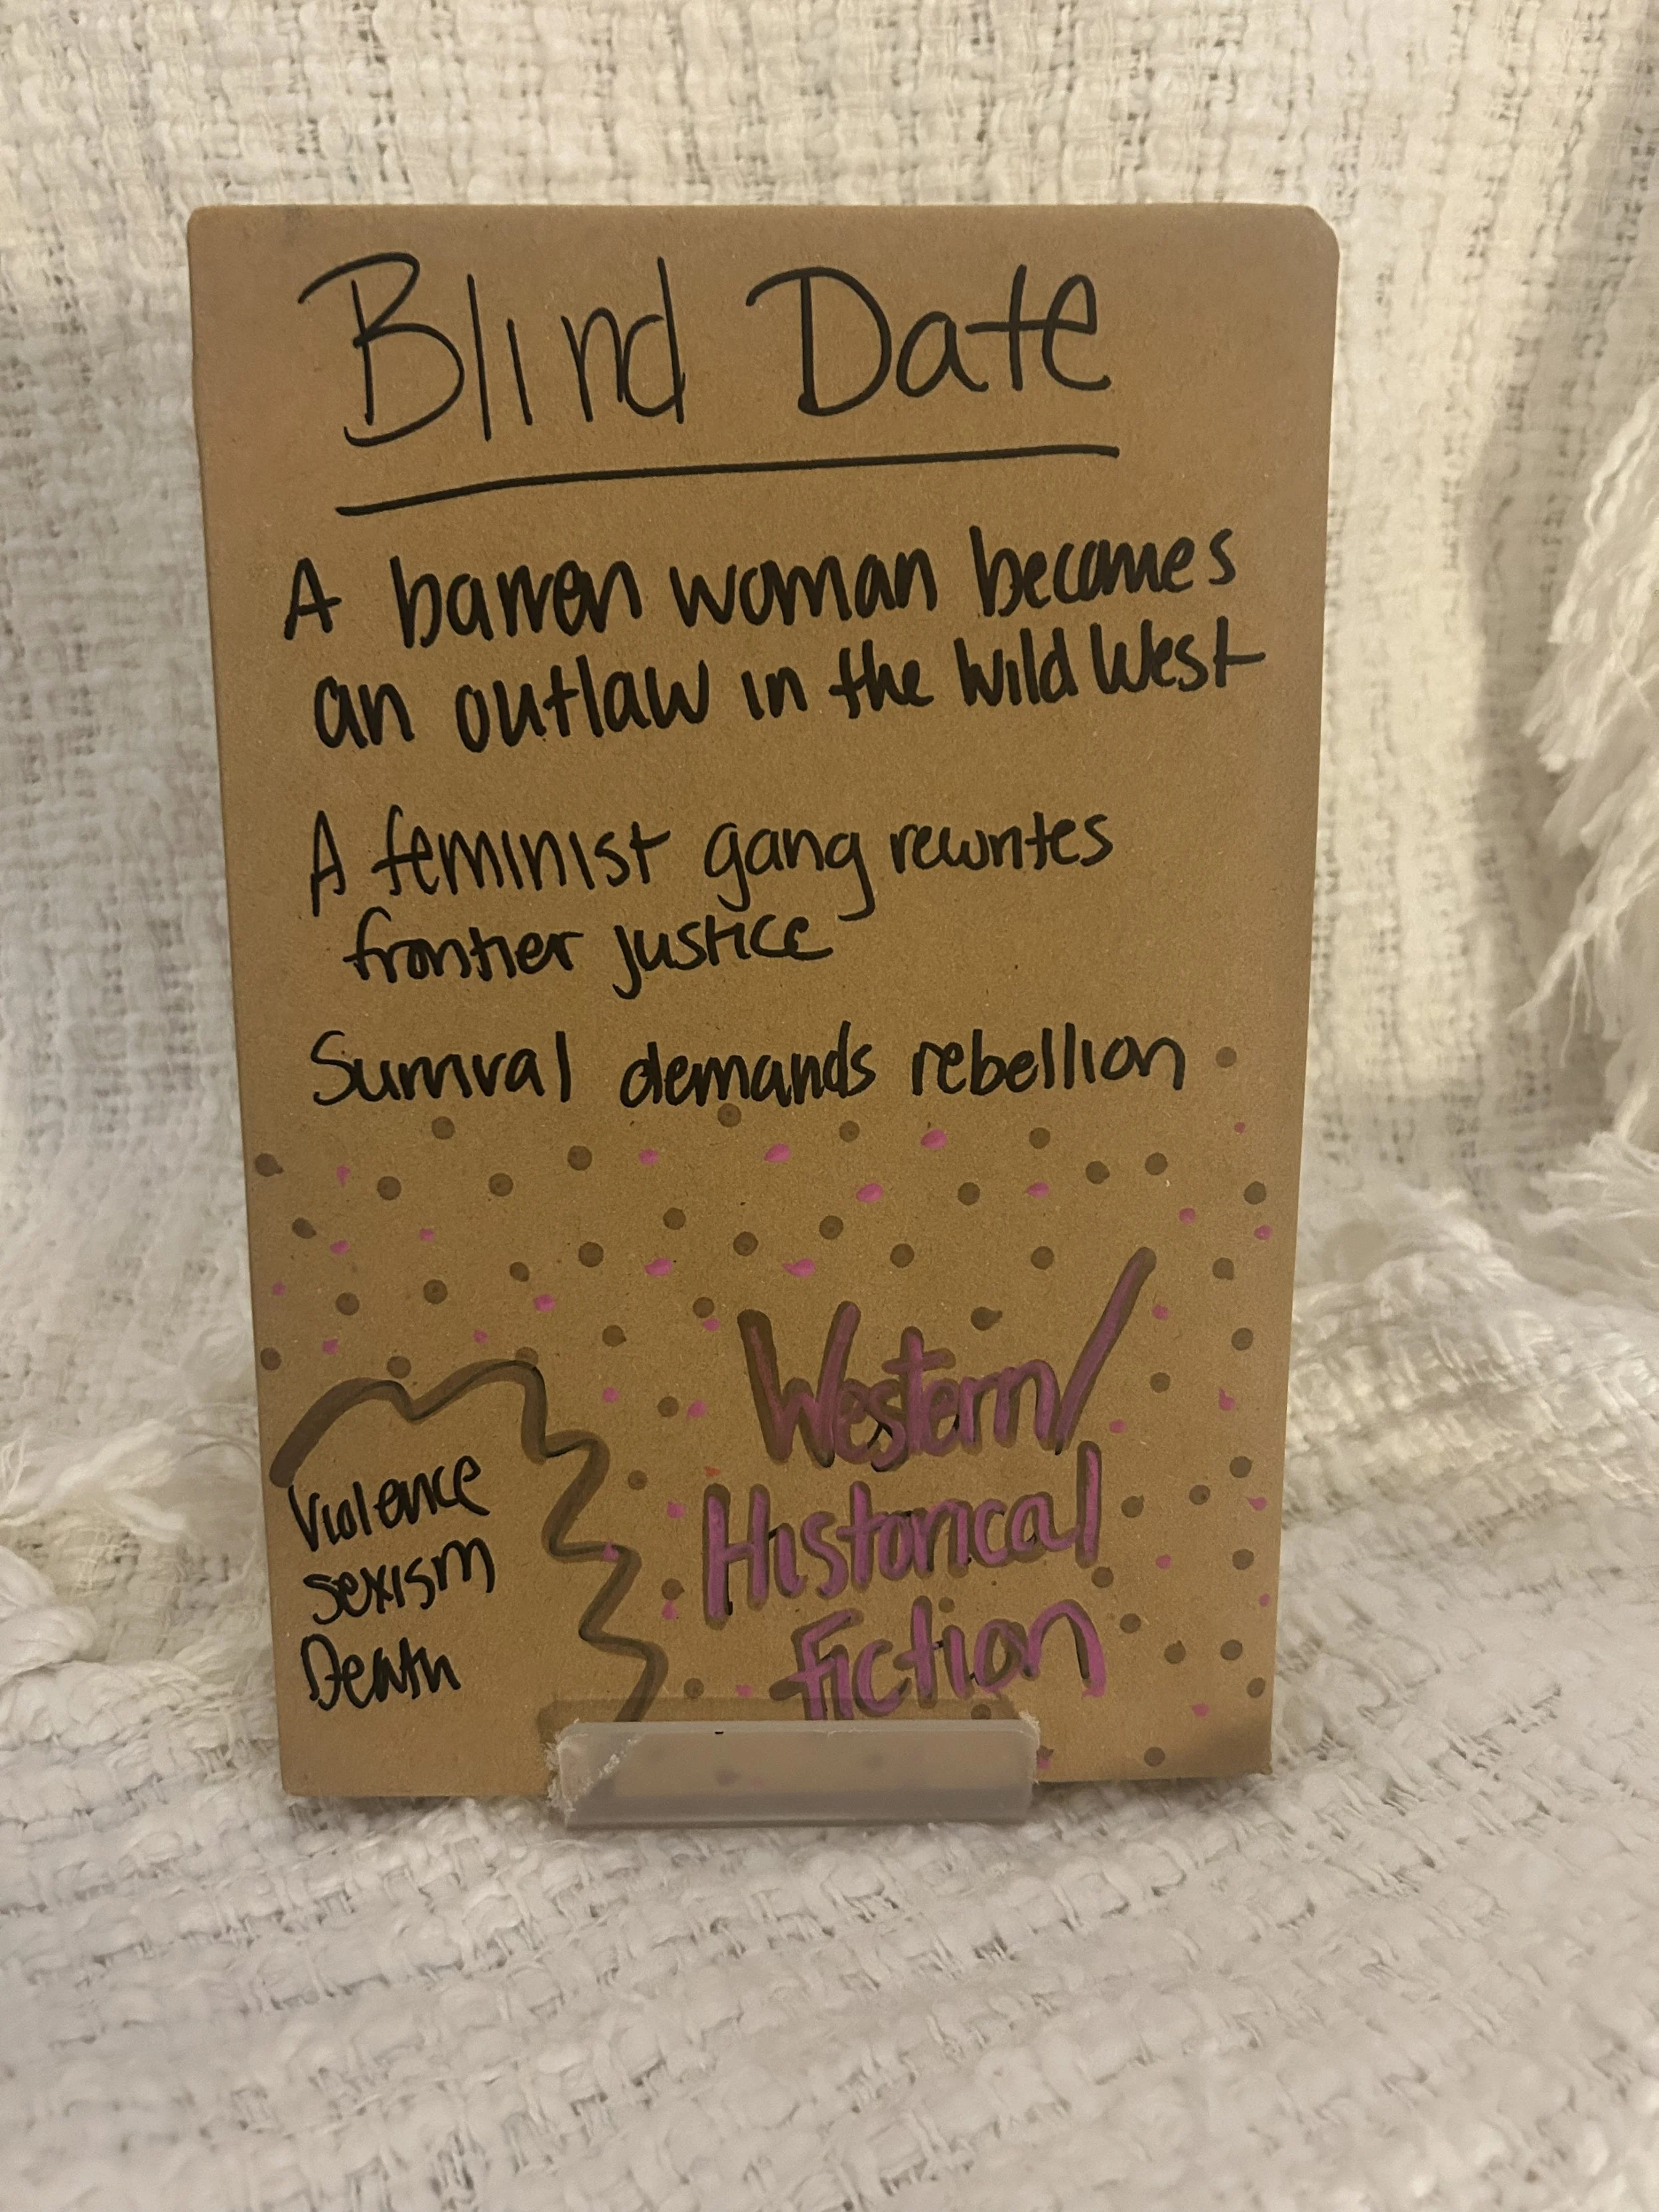 Blind Date
A barren woman becomes
an outlaw in the Wild West
A feminist gang rewrites
frontier justice
Survival demands rebellion
Western/
Historical
Fiction
Violence
Sexism
Death